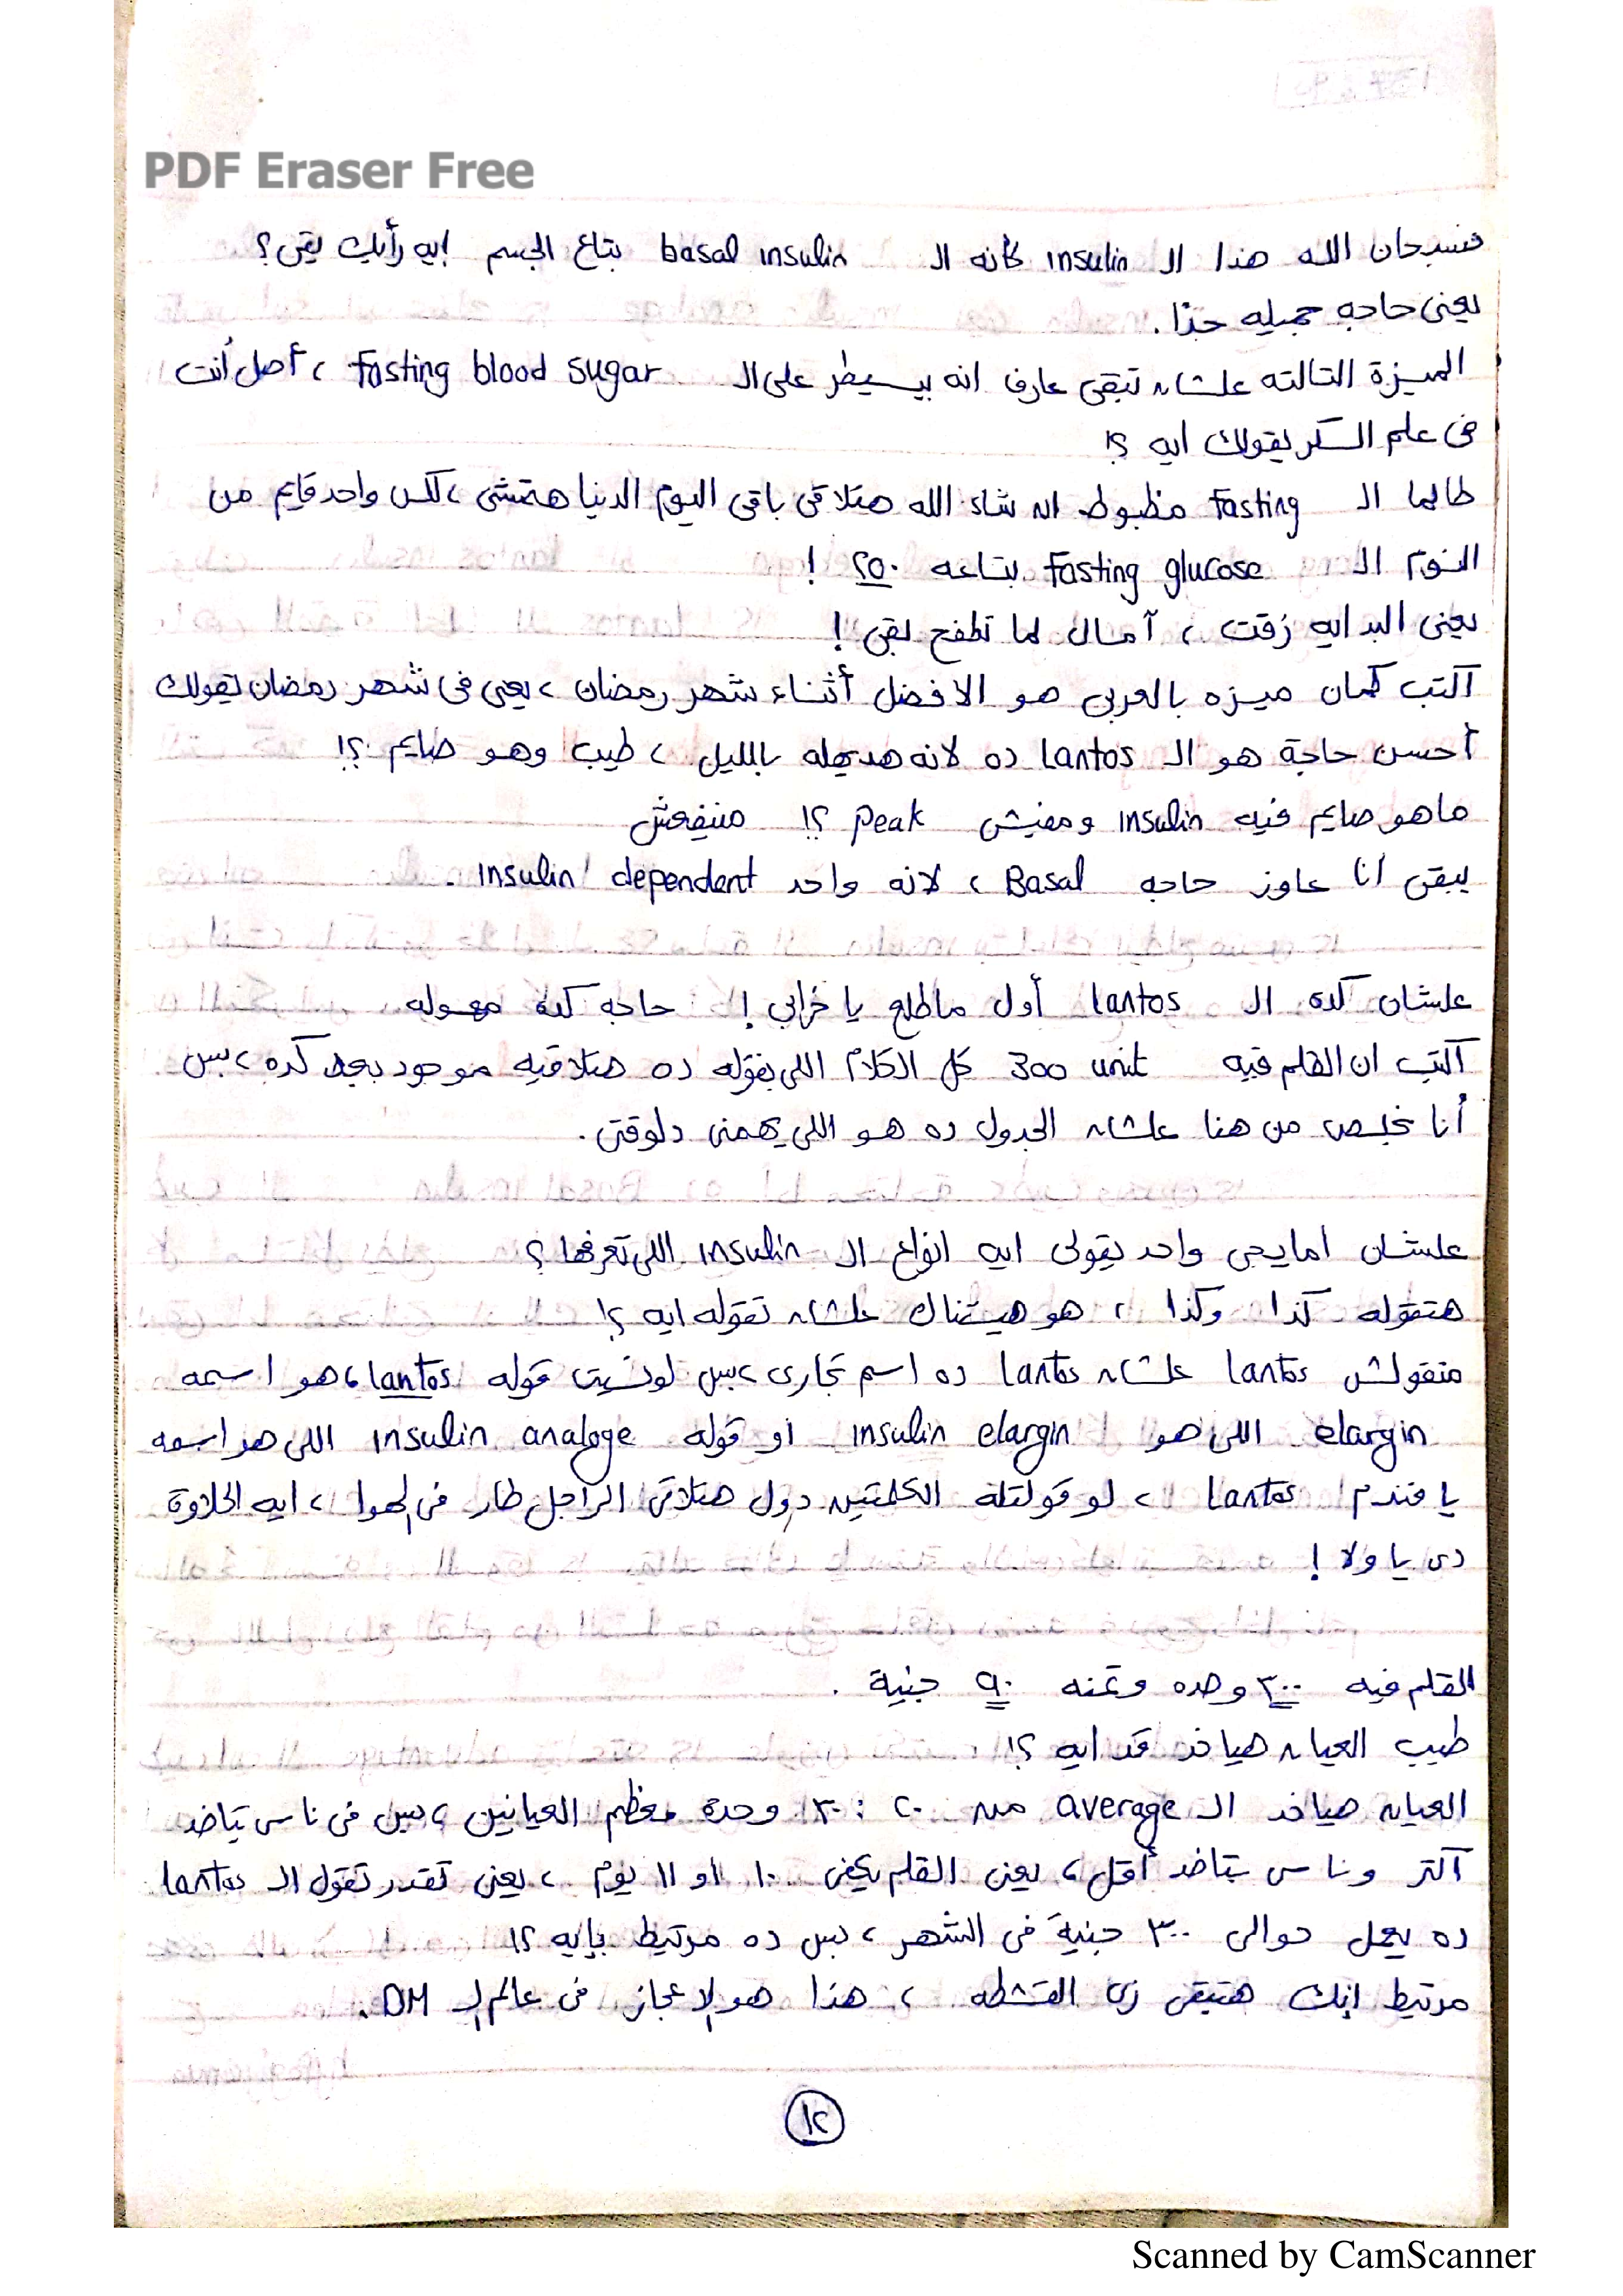 PDF Eraser Free
فسبحان الله هذا الـ insulin كانه الـ basal insulin بتاع الجسم إيه رأيك بقى؟
يعنى حاجه جميله جدًا.
الميزة التالته علشان تبقى عارف انه بيسيطر على الـ fasting blood sugar ، أصل أنت
فى علم السكر يقولك ايه ؟!
طالما الـ fasting مظبوط ان شاء الله هتلاقى باقى اليوم الدنيا هتمشى ، لكن واحد قايم من
النوم الـ Fasting glucose بتاعه ٢٥٠ !
يعنى البدايه زفت ، آمال لما تطفح بقى !
اكتب كمان ميزه بالعربى هو الافضل أثناء شهر رمضان ، يعنى فى شهر رمضان يقولك
أحسن حاجة هو الـ Lantos ده لانه هديهله بالليل ، طيب وهو صايم ؟!
ماهو صايم فيه insulin ومفيش peak ؟! مينفعش
يبقى انا عاوز حاجه Basal ، لانه واحد insulin dependent .
علشان كده الـ Lantos أول ماطلع يا خرابي ! حاجه كده مهوله
اكتب ان القلم فيه 300 unit كل الكلام اللى بقوله ده هتلاقيه موجود بعد كده ، بس
أنا نخلص من هنا علشان الجدول ده هو اللى يهمنى دلوقتى .
علشان امايجى واحد يقولى ايه انواع الـ insulin اللى تعرفها ؟
هتقوله كذا وكذا ، هو هيستناك علشان تقوله ايه ؟!
متقولش Lantos علشان Lantos ده اسم تجارى ، بس لو نسيت قوله Lantos ، هو اسمه
elargin اللى هو insulin elargin او قوله insulin analoge اللى هو اسمه
يا فندم Lantos ، لو قولتله الكلمتين دول هتلاقى الراجل طار فى الهوا ، ايه الحلاوة
دى يا ولا !
القلم فيه ٣٠٠ وحده وتمنه ٩٠ جنية .
طيب العيان هياخد قد ايه ؟!
العيان هياخد الـ average من ٢٠ : ٣٠ وحدة معظم العيانين ، بس فى ناس بتاخد
اكتر وناس بتاخد أقل ، يعنى القلم يكفى ١٠ او ١١ يوم ، يعنى تقدر تقول الـ Lantos
ده يعمل حوالى ٣٠٠ جنية فى الشهر ، بس ده مرتبط بإيه ؟!
مرتبط إنك هتبقى زى القشطه ، هذا هو الاعجاز فى عالم الـ DM .
١٢
Scanned by CamScanner